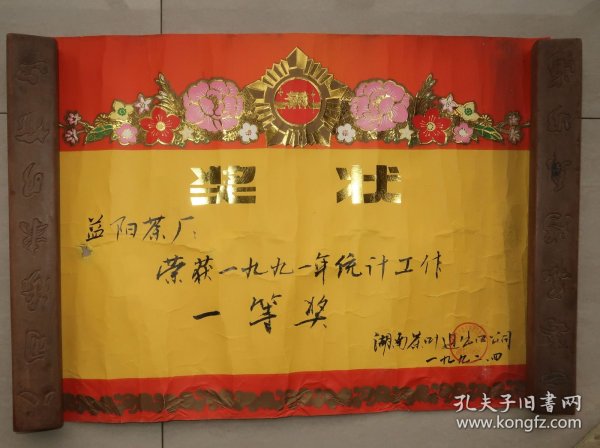 奖状
益阳茶厂:
荣获一九九一年统计工作
一等奖
湖南茶叶进出口公司
一九九二.四
孔夫子旧书网
www.kongfz.com